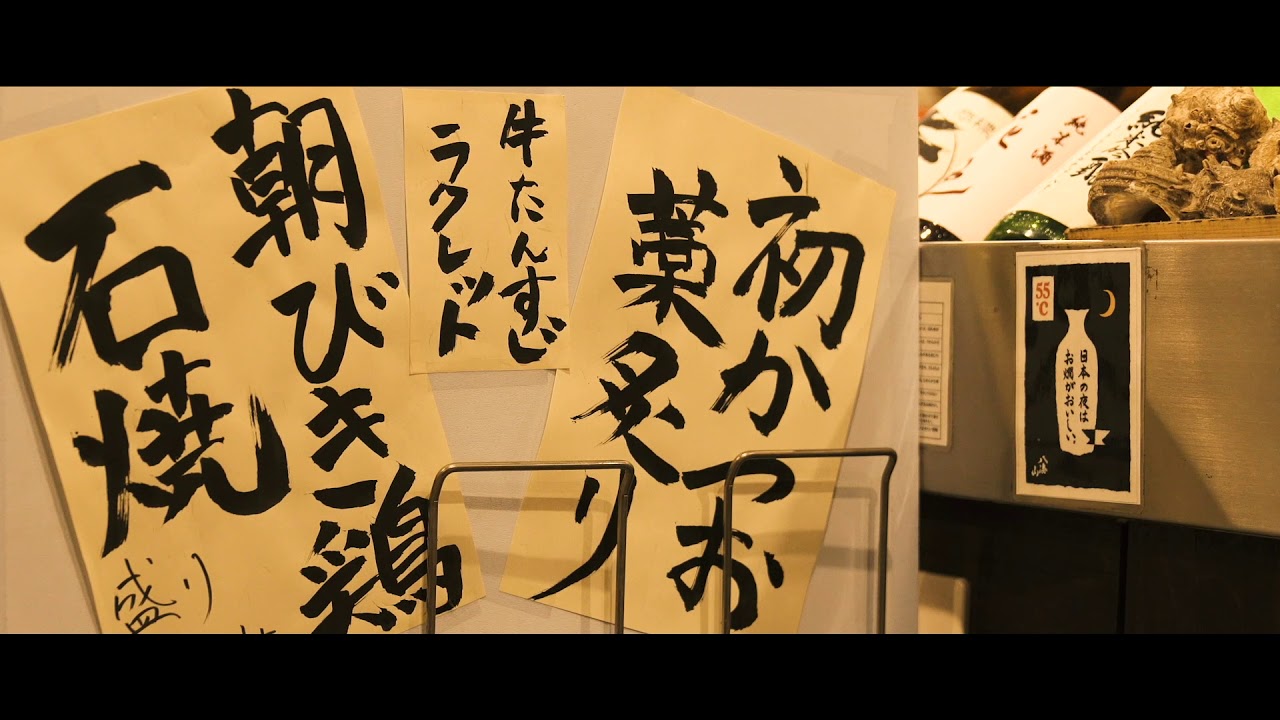 初かつお
藁炙り
牛たんすじ
ラクレット
朝びき鶏
石焼
盛り
純米酒
55
℃
日本の夜は
お燗がおいしい。
八海山